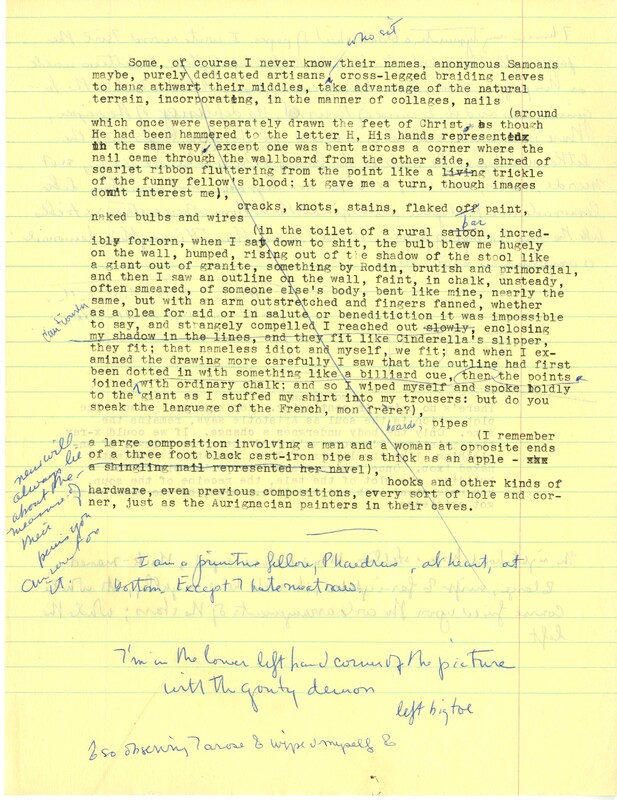 who sit
Some, of course I never know their names, anonymous Samoans
maybe, purely dedicated artisans, cross-legged braiding leaves
to hang athwart their middles, take advantage of the natural
terrain, incorporating, in the manner of collages, nails
(around
which once were separately drawn the feet of Christ, as though
He had been hammered to the letter H, His hands represented
in the same way, except one was bent across a corner where the
nail came through the wallboard from the other side, a shred of
scarlet ribbon fluttering from the point like a living trickle
of the funny fellow's blood: it gave me a turn, though images
don't interest me),
cracks, knots, stains, flaked off paint,
naked bulbs and wires
bar
(in the toilet of a rural saloon, incred-
ibly forlorn, when I sat down to shit, the bulb blew me hugely
on the wall, humped, rising out of the shadow of the stool like
a giant out of granite, something by Rodin, brutish and primordial,
and then I saw an outline on the wall, faint, in chalk, unsteady,
often smeared, of someone else's body, bent like mine, nearly the
same, but with an arm outstretched and fingers fanned, whether
as a plea for aid or in salute or benediction it was impossible
to say, and strangely compelled I reached out slowly, enclosing
my shadow in the lines, and they fit like Cinderella's slipper,
they fit; that nameless idiot and myself, we fit; and when I ex-
amined the drawing more carefully I saw that the outline had first
been dotted in with something like a billiard cue, then the points
joined with ordinary chalk; and so I wiped myself and spoke boldly
to the giant as I stuffed my shirt into my trousers: but do you
speak the language of the French, mon frère?),
boards, pipes
(I remember
a large composition involving a man and a woman at opposite ends
of a three foot black cast-iron pipe as thick as an apple - xxx
a shingling nail represented her navel),
hooks and other kinds of
hardware, even previous compositions, every sort of hole and cor-
ner, just as the Aurignacian painters in their caves.
men will
always be
about the
measure of
their
penis you
can count on
it.
I am a primitive fellow, Phaedrus, at heart, at
bottom. Except I hate meat raw.
I'm in the lower left hand corner of the picture
with the gouty demon
left big toe
& so observing I arose & wiped myself &